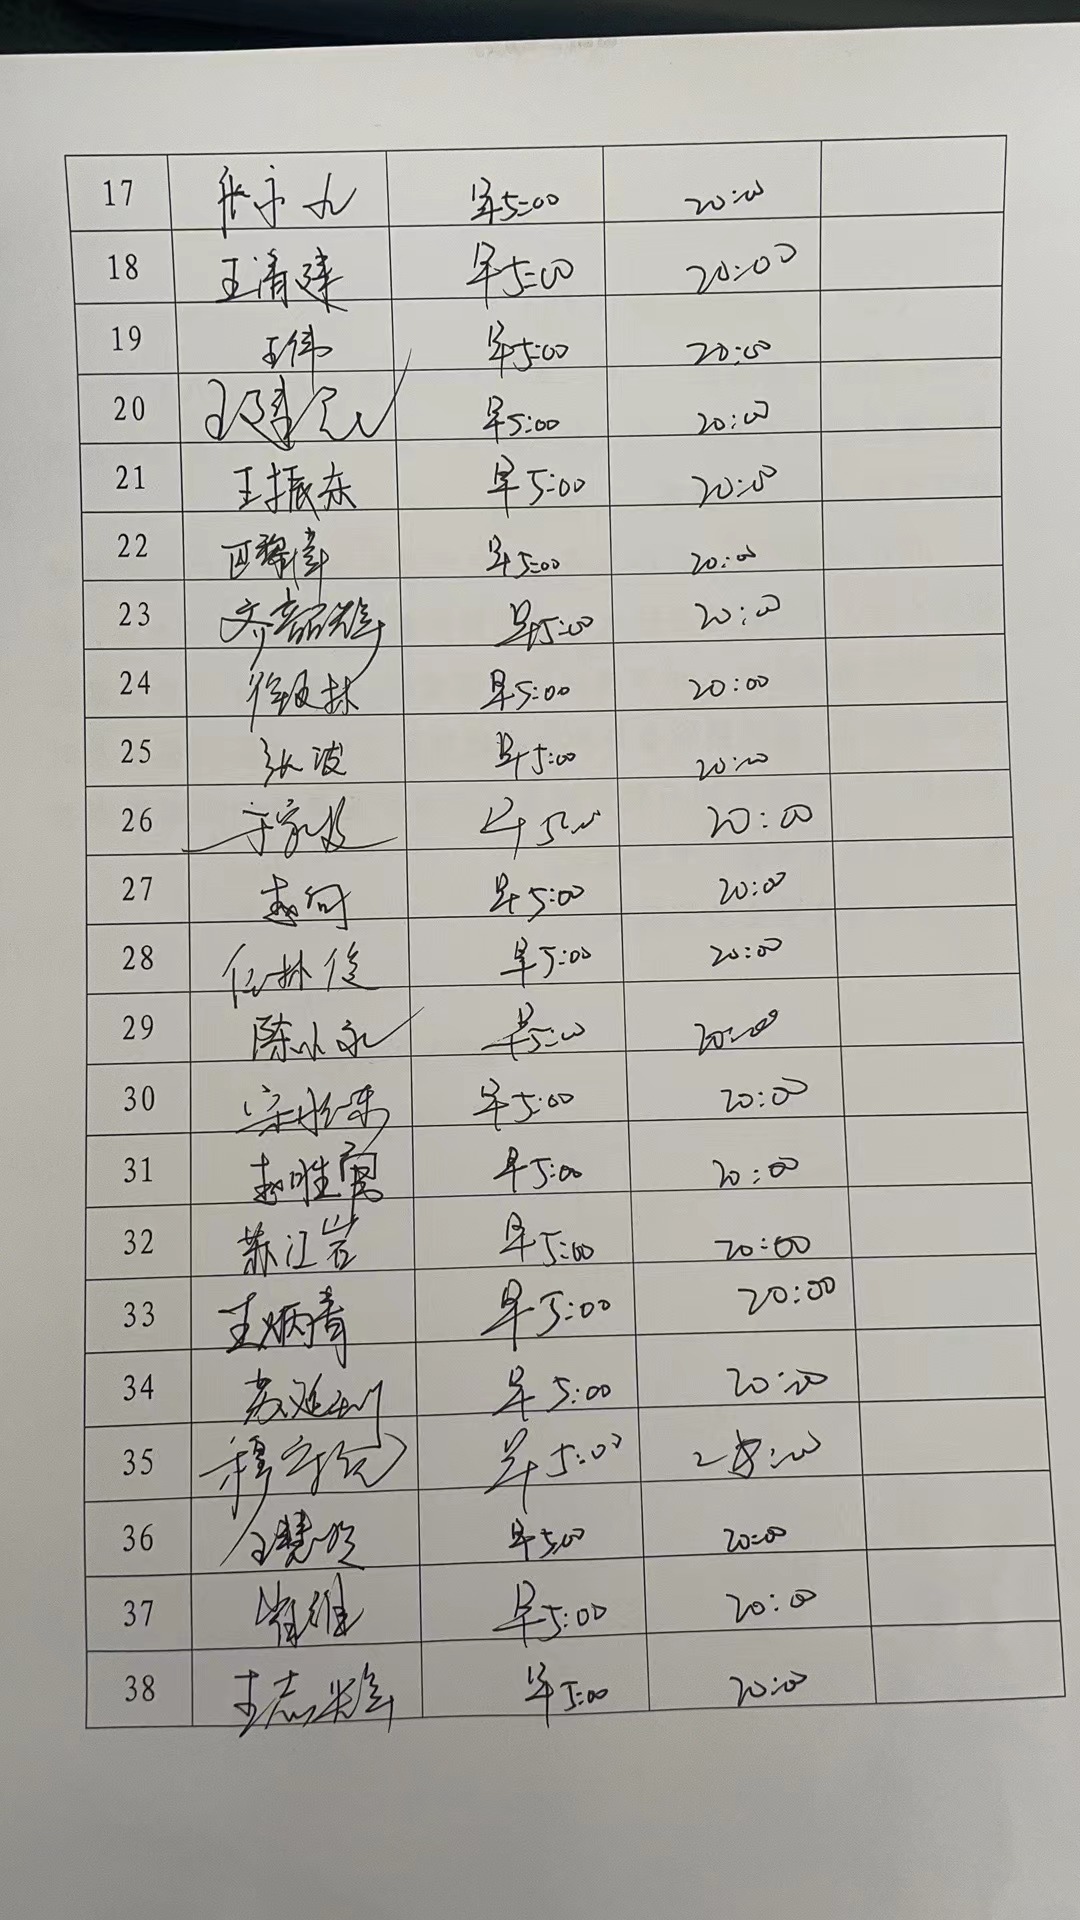 17 早5:00 20:00
18 王清建 早5:00 20:00
19 王伟 早5:00 20:00
20 早5:00 20:00
21 王振东 早5:00 20:00
22 早5:00 20:00
23 齐韶辉 早5:00 20:00
24 早5:00 20:00
25 张波 早5:00 20:00
26 早5:00 20:00
27 赵向 早5:00 20:00
28 任林俊 早5:00 20:00
29 陈永 早5:00 20:00
30 早5:00 20:00
31 赵胜 早5:00 20:00
32 苏江岩 早5:00 20:00
33 王炳青 早5:00 20:00
34 苏延利 早5:00 20:00
35 穆 早5:00
36 王慧 早5:00 20:00
37 崔维 早5:00 20:00
38 王志辉 早5:00 20:00